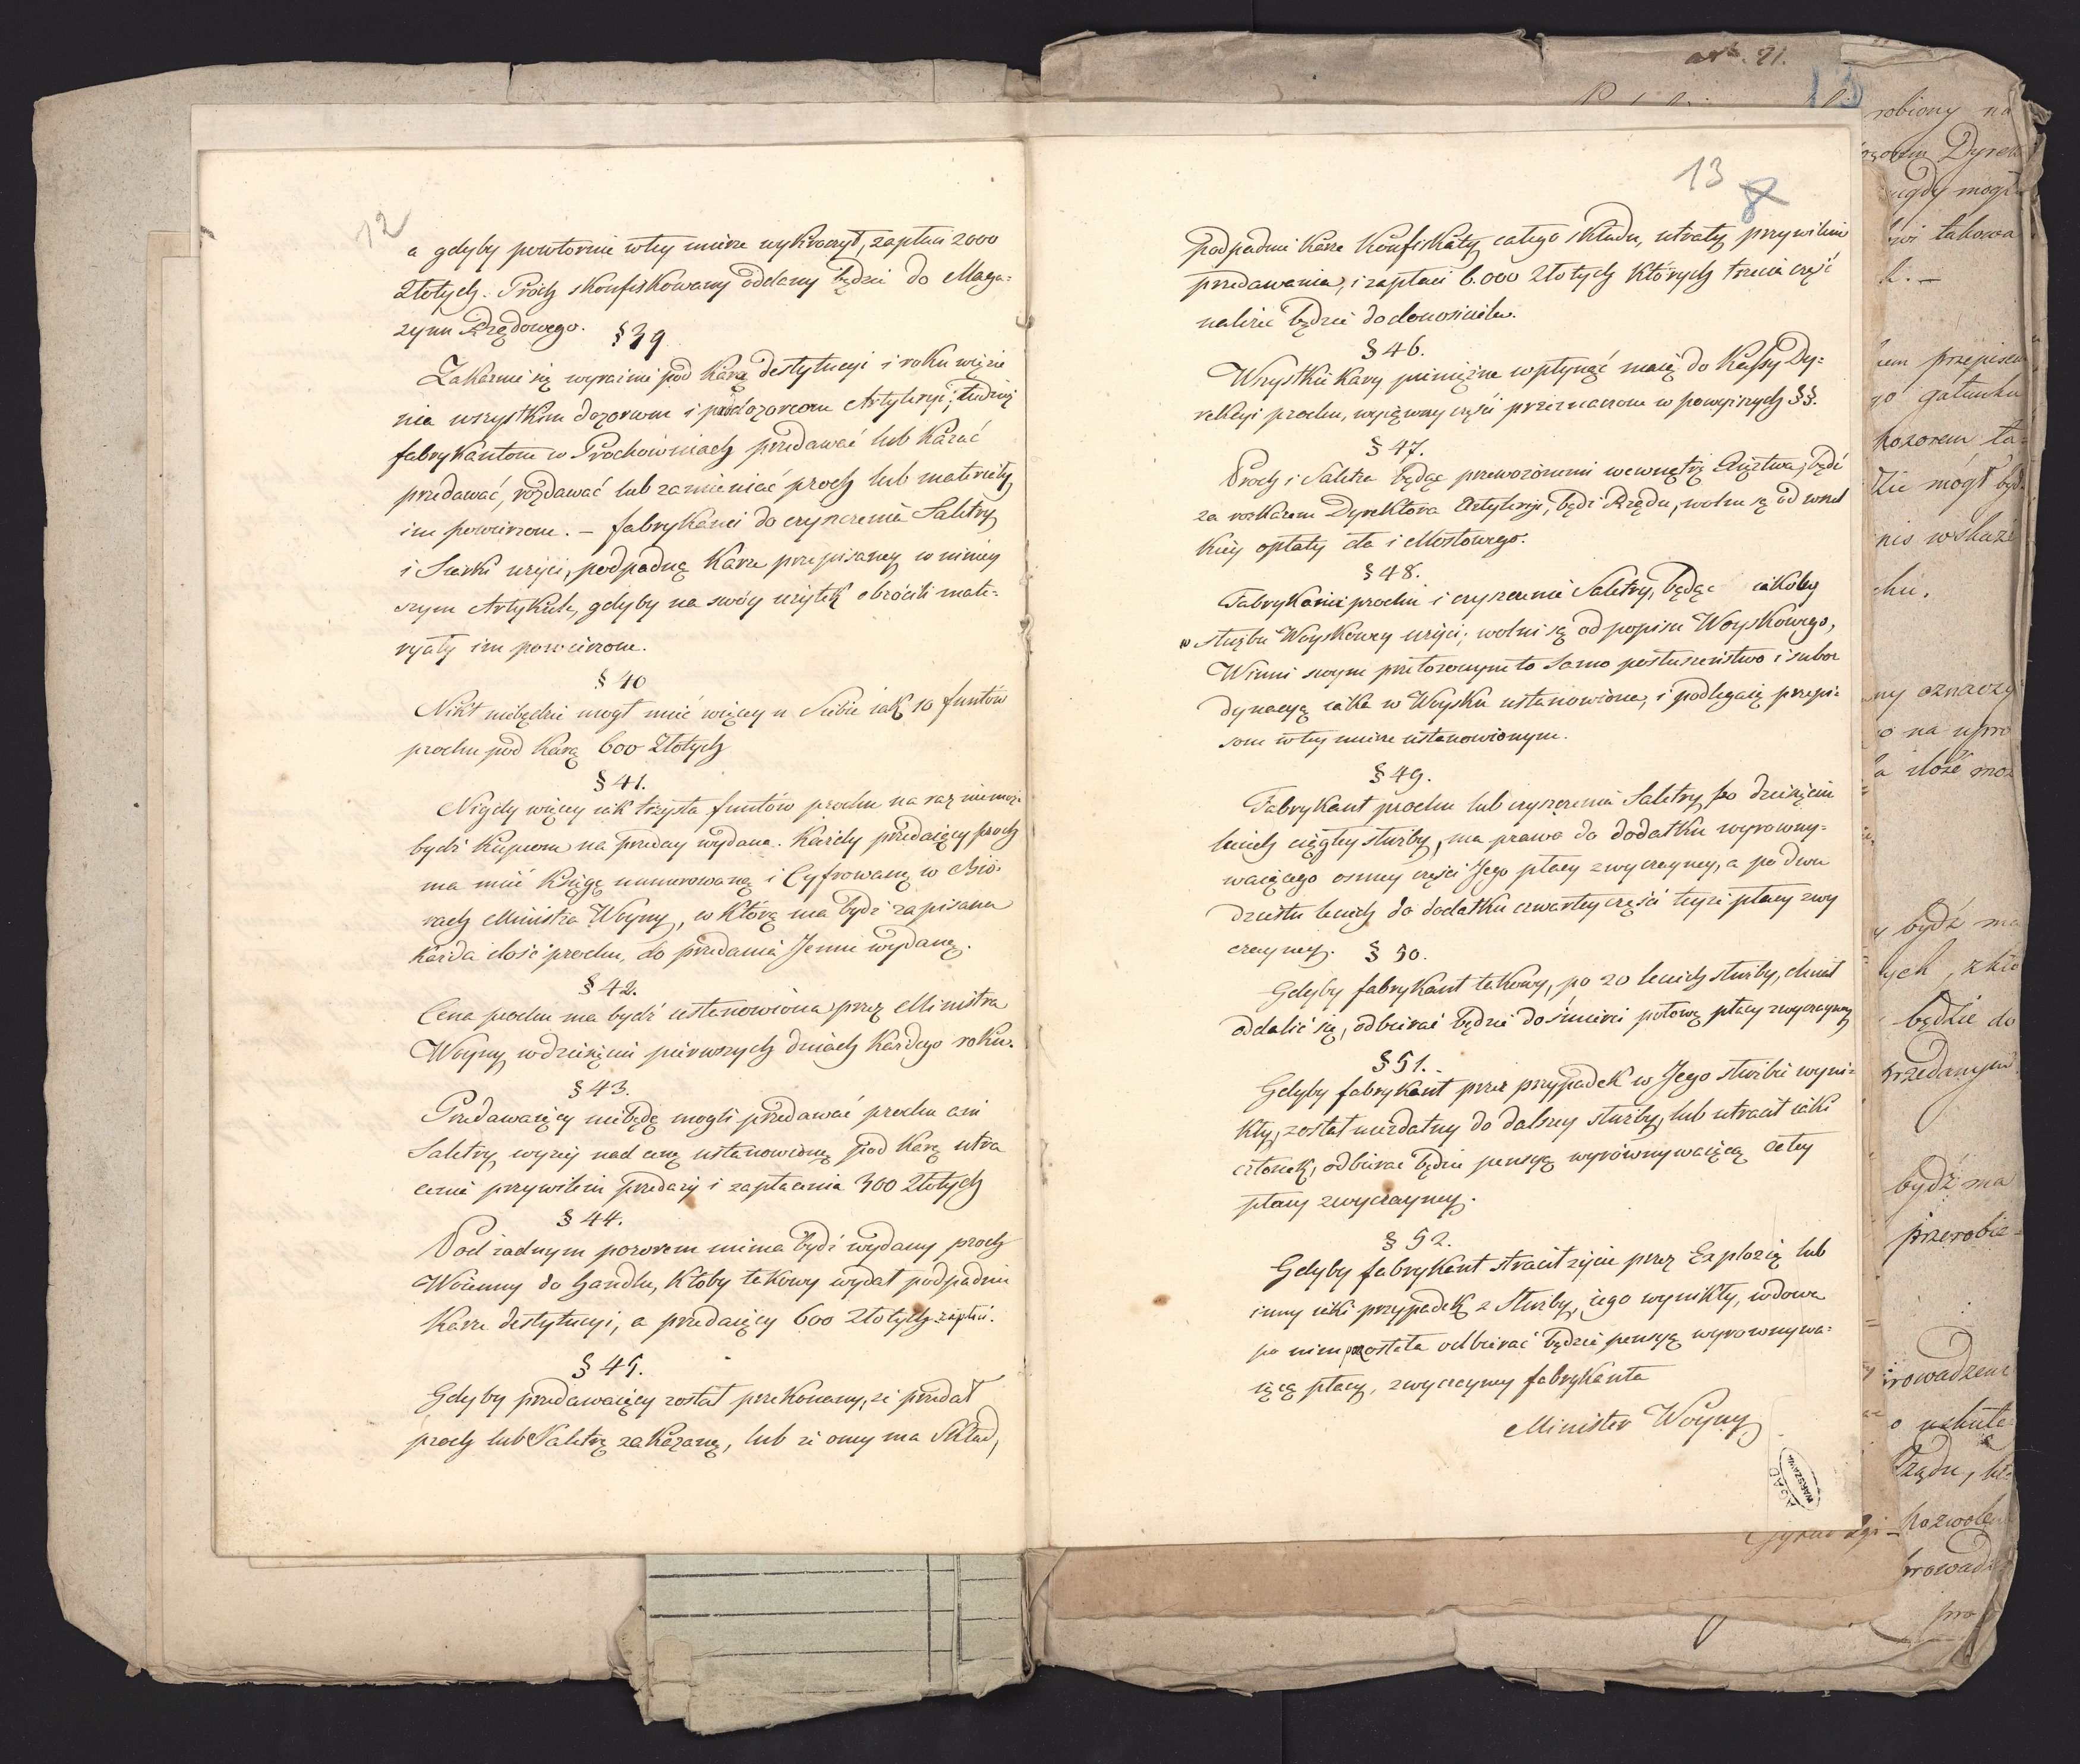 12
a gdyby powtornie wtey mierze wykroczył, zapłaci 2000
Złotych. Proch skonfiskowany oddany będzie do Maga=
zynu Rządowego.
§ 39
Zakazuie się wyraźnie pod karą destytucyi i roku więzie
nia wszystkim dozorcom i poddozorcom Artyleryi, tudzież
fabrykantom w Prochowniach przedawać lub kazać
przedawać, rozdawać lub zamieniać proch lub materiały
im powierzone. – fabrykanci do czyszczenia Saletry
i Siarki użyci, podpadną karze przepisaney w niniey
szym Artykule, gdyby na swóy użytek obrócili mate=
ryały im powierzone.
§ 40
Nikt niebędzie mogł mieć więcey u Siebie iak 10 funtów
prochu pod karą 600 Złotych
§ 41.
Nigdy więcey iak trzysta funtów prochu na raz niemoże
bydź kupcom na przeday wydane. Każdy przedaiący proch
ma mieć księgę numerowaną i Cyfrowaną w Biό=
rach Ministra Woyny, w którą ma bydź zapisana
każda ilość prochu, do przedania Jemu wydaną.
§ 42.
Cena prochu ma bydź ustanowiona przez Ministra
Woyny w dziesięciu pierwszych dniach każdego roku.
§ 43.
Przedawaiący niebędą mogli przedawać prochu ani
Saletry wyżey nad cenę ustanowioną pod karą utra
cenia przywileiu przedaży i zapłacenia 300 Złotych
§ 44.
Pod żadnym pozorem niema bydź wydany proch
Woienny do handlu, ktoby takowy wydał podpadnie
karze destytucyi, a przedaiący 600 Złotych zapłaci.
§ 45.
Gdyby przedawaiący został przekonany, że przedał
proch lub Saletrę zakazaną, lub że onny ma Skład,
art. 21.
13
13 8
podpadnie karze konfiskaty całego składu, utraty przywileiu
przedawania, i zapłaci 6.000 Złotych których trzecia część
należeć będzie do donosiciela.
§ 46.
Wszystkie kary pieniężne wpłynąć maią do Kassy Dy=
rekcyi prochu, wyiąwszy części przeznaczone w powyższych §§.
§ 47.
Proch i Saletra będąc przewożonemi wewnątrz Xięztwa, bądź
za rozkazem Dyrektora Artyleryi, bądź Rządu, wolne są od wszel
kiey opłaty cła i Mostowego.
§ 48.
Fabrykanci prochu i czyszczenia Saletry, będąc iakoby
w służbie Woyskowey użyci, wolni są od popisu Woyskowego,
Winni swym przełożonym to samo posłuszeństwo i subor
dynacyą iaka w Woysku ustanowiona, i podlegaią przepi=
som w tey mierze ustanowionym.
§ 49.
Fabrykant prochu lub czyszczenia Saletry po dziesięciu
leciech ciągłey służby, ma prawo do dodatku wyrowny=
waiącego osmey części Jego płacy zwyczayney, a po dwu
dziestu leciech do dodatku czwartey części teyże płacy zwy
czayney.
§ 50.
Gdyby fabrykant takowy, po 20 leciech służby, chciał
oddalić się, odbierać będzie do śmierci połowę płacy zwyczayney
§ 51.
Gdyby fabrykant przez przypadek w Jego służbie wyni=
kły, został niezdatny do dalszey służby, lub utracił iaki
członek, odbierać będzie pensyą wyrównywaiącą całey
płacy zwyczayney.
§ 52.
Gdyby fabrykant stracił życie przez Explozią lub
inny iaki przypadek z służby iego wynikły, wdowa
po nim pozostała odbierać będzie pensyą wyrownywa=
iącą płacy, zwyczayney fabrykanta
Minister Woyny
AGAD
WARSZAWA
robiony na
Dyrek
nigdy mogł
takowa
przepisem
gatunku
pozorem ta=
mógł być
nie wskaże
chu.
ny oznaczy
o na upro
ilość moż
bydź ma
ych, z któ
będzie do
przedanym
bydź ma
przerobie=
prowadzeni
o uskute=
Rządu, któ=
pozwolen
prowadz
pro